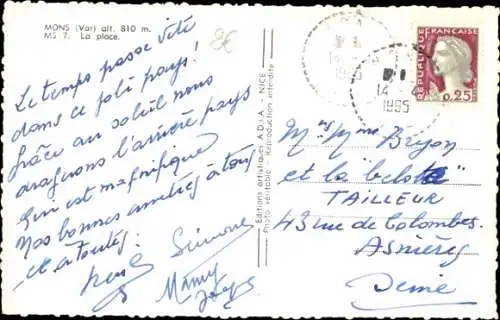 MONS (Var) alt. 810 m.
MS 7. La place.
8€
Le temps passe vite
dans ce joli pays!
Grâce au soleil nous
l'arrière pays
qui est magnifique
Nos bonnes amitiés à tous
et à toutes.
Simone
Mamy
Editions artistiques A.D.I.A. - NICE
Photo véritable - Reproduction interdite
14
1965
REPUBLIQUE FRANÇAISE
0,25
Mr Mme Bryon
et la
TAILLEUR
43 rue de Colombes.
Asnières
Seine